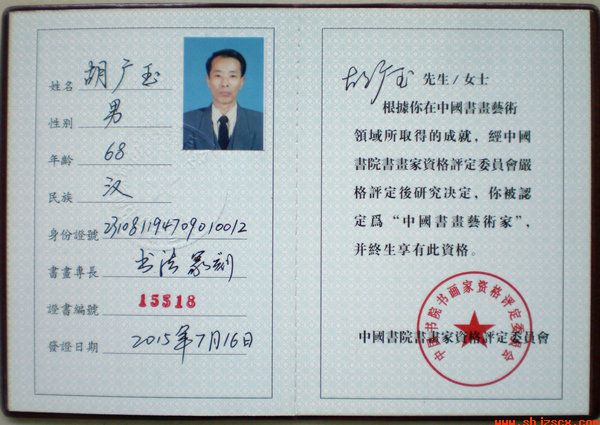 姓名 胡广玉
性別 男
年齡 68
民族 汉
身份證號 231081194709010012
書畫專長 书法篆刻
證書編號 15318
發證日期 2015年7月16日
胡广玉 先生/女士
根據你在中國書畫藝術
領域所取得的成就，經中國
書院書畫家資格評定委員會嚴
格評定後研究決定，你被認
定爲“中國書畫藝術家”，
并終生享有此資格。
中國書院書畫家資格評定委員會
中国书院书画家资格评定委员会
www.shjzscx.com